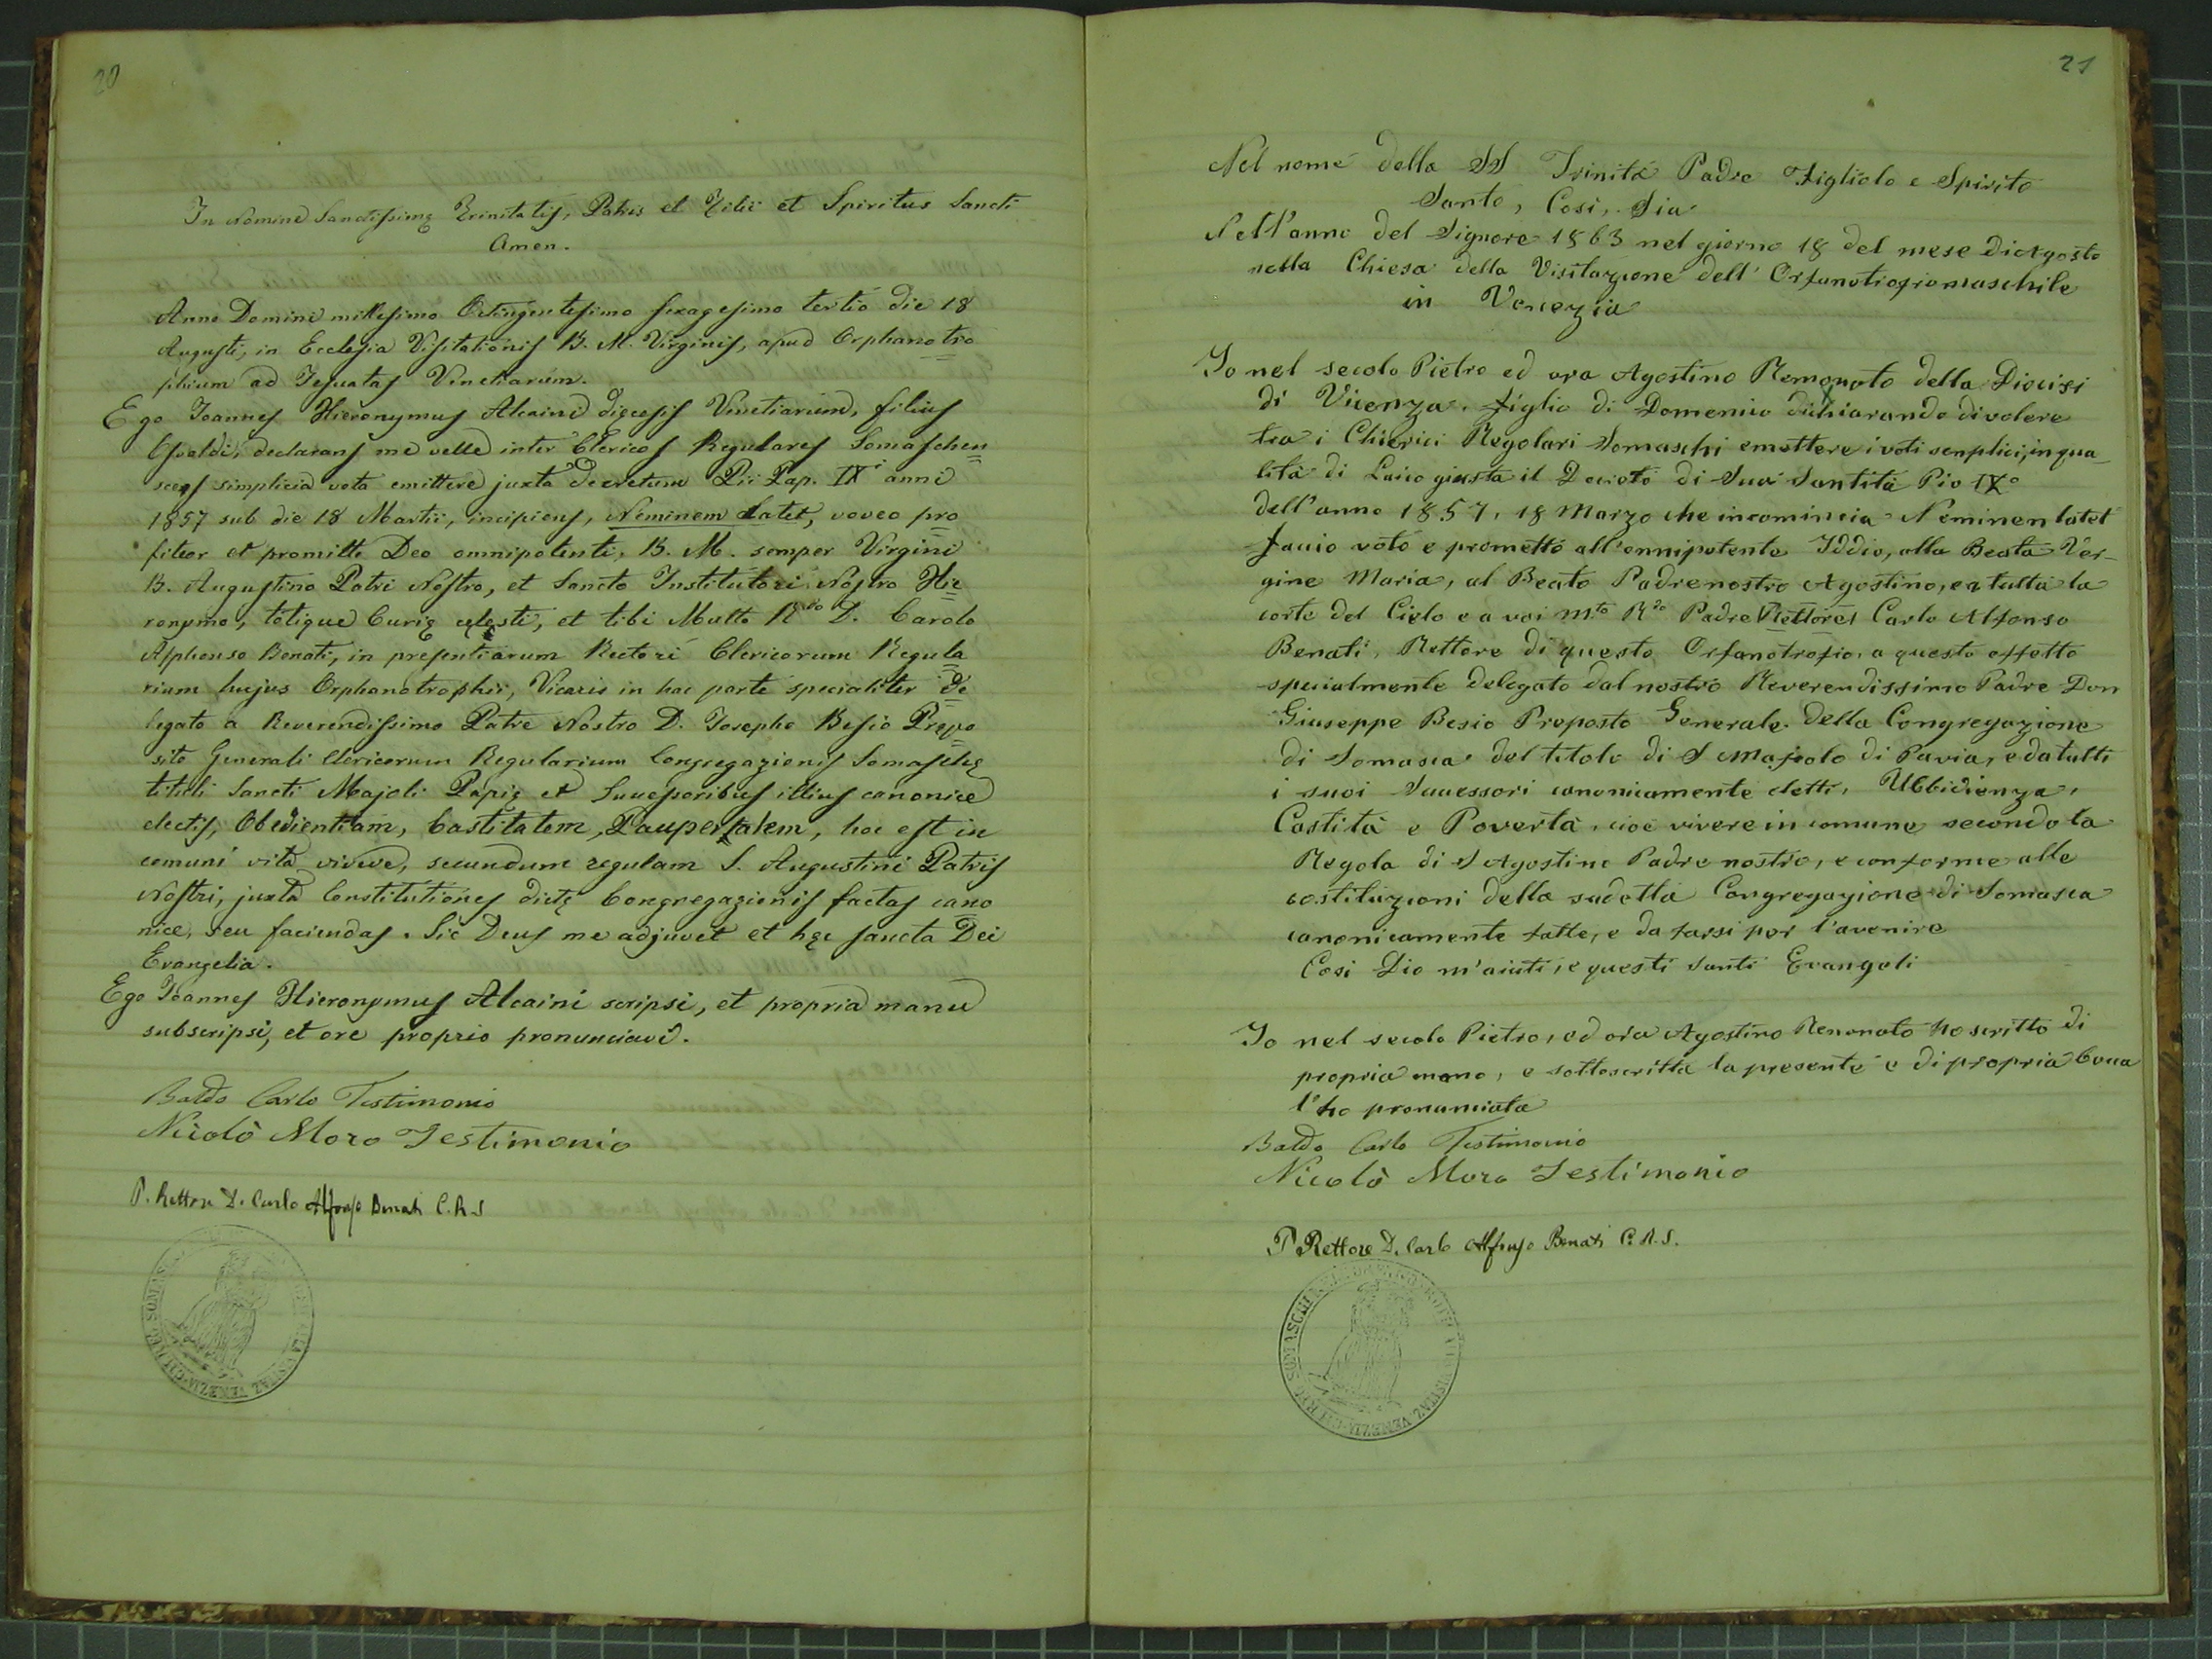 20
In Nomine Sanctissimę Trinitatis, Patris et Filii et Spiritus Sancti
Amen.
Anno Domini millesimo Octingentesimo sexagesimo tertio die 18
Augusti, in Ecclesia Visitationis B. M. Virginis, apud Orphanotro
phium ad Jesuatas Venetiarum.
Ego Joannes Hieronymus Alcaini dięcesis Venetiarum, filius
Osvaldi, declarans me velle inter Clericos Regulares Somaschen
sces simplicia vota emittere juxta decretum Pii Pap. IX anni
1857 sub die 18 Martii, incipiens, Neminem Latet, voveo pro
fiteor et promitto Deo omnipotenti, B. M. semper Virgini
B. Augustino Patri Nostro, et Sancto Institutori Nostro Hie
ronymo, totique Curię cęlesti, et tibi Multo Rdo D. Carolo
Alphonso Benati, in presentiarum Rectori Clericorum Regula
rium hujus Orphanotrophii, Vicario in hac parte specialiter de
legato a Reverendissimo Patre Nostro D. Josepho Besio Prępo
sito Generali Clericorum Regularium Congregazionis Somaschę
tituli Sancti Majoli Papię et Successoribus illius canonice
electis, Obedientiam, Castitatem, Paupertatem, hoc est in
comuni vita vivere, secundum regulam S. Augustini Patris
Nostri, juxta Constitutiones dictę Congregazionis factas cano
nice, seu faciendas. Sic Deus me adjuvet et hęc sancta Dei
Evangelia.
Ego Joannes Hieronymus Alcaini scripsi, et propria manu
subscripsi, et ore proprio pronunciavi.
Baldo Carlo Testimonio
Nicolò Moro Testimonio
P. Rettore D. Carlo Alfonso Benati C.R.S
21
Nel nome della SS Trinità Padre Figliolo e Spirito
Santo, Così, Sia
Nell'anno del Signore 1863 nel giorno 18 del mese di Agosto
nella Chiesa della Visitazione dell' Orfanotrofio maschile
in Venezia
Io nel secolo Pietro ed ora Agostino Remonato della Diocisi
di Vicenza. figlio di Domenico dichiarando di volere
tra i Chierici Regolari Somaschi emettere i voti semplici, in qua
lità di Laico giusta il Decreto di Sua Santità Pio IXo
dell'anno 1857. 18 Marzo che incomincia Neminen latet
faccio voto e prometto all'onnipotente Iddio, alla Beata Ver-
gine Maria, al Beato Padre nostro Agostino, e a tutta la
corte del Cielo e a voi Mto Rdo Padre Rettore Carlo Alfonso
Benati, Rettore di questo Orfanotrofio, a questo effetto
specialmente delegato dal nostro Reverendissimo Padre Don
Giuseppe Besio Preposto Generale della Congregazione
di Somasca del titolo di S Majolo di Pavia, e da tutti
i suoi Successori canonicamente eletti, Ubbidienza,
Castità e Povertà, cioè vivere in comune secondo la
Regola di S Agostino Padre nostro, e conforme alle
costituzioni della sudetta Congregazione di Somasca
canonicamente fatte, e da farsi per l'avenire
Così Dio m'aiuti, e questi Santi Evangeli
Io nel secolo Pietro, ed ora Agostino Remonato ho scritto di
propria mano, e sottoscritta la presente e di propria bocca
l'ho pronunciata
Baldo Carlo Testimonio
Nicolò Moro Testimonio
P Rettore D. Carlo Alfonso Benati C.R.S.